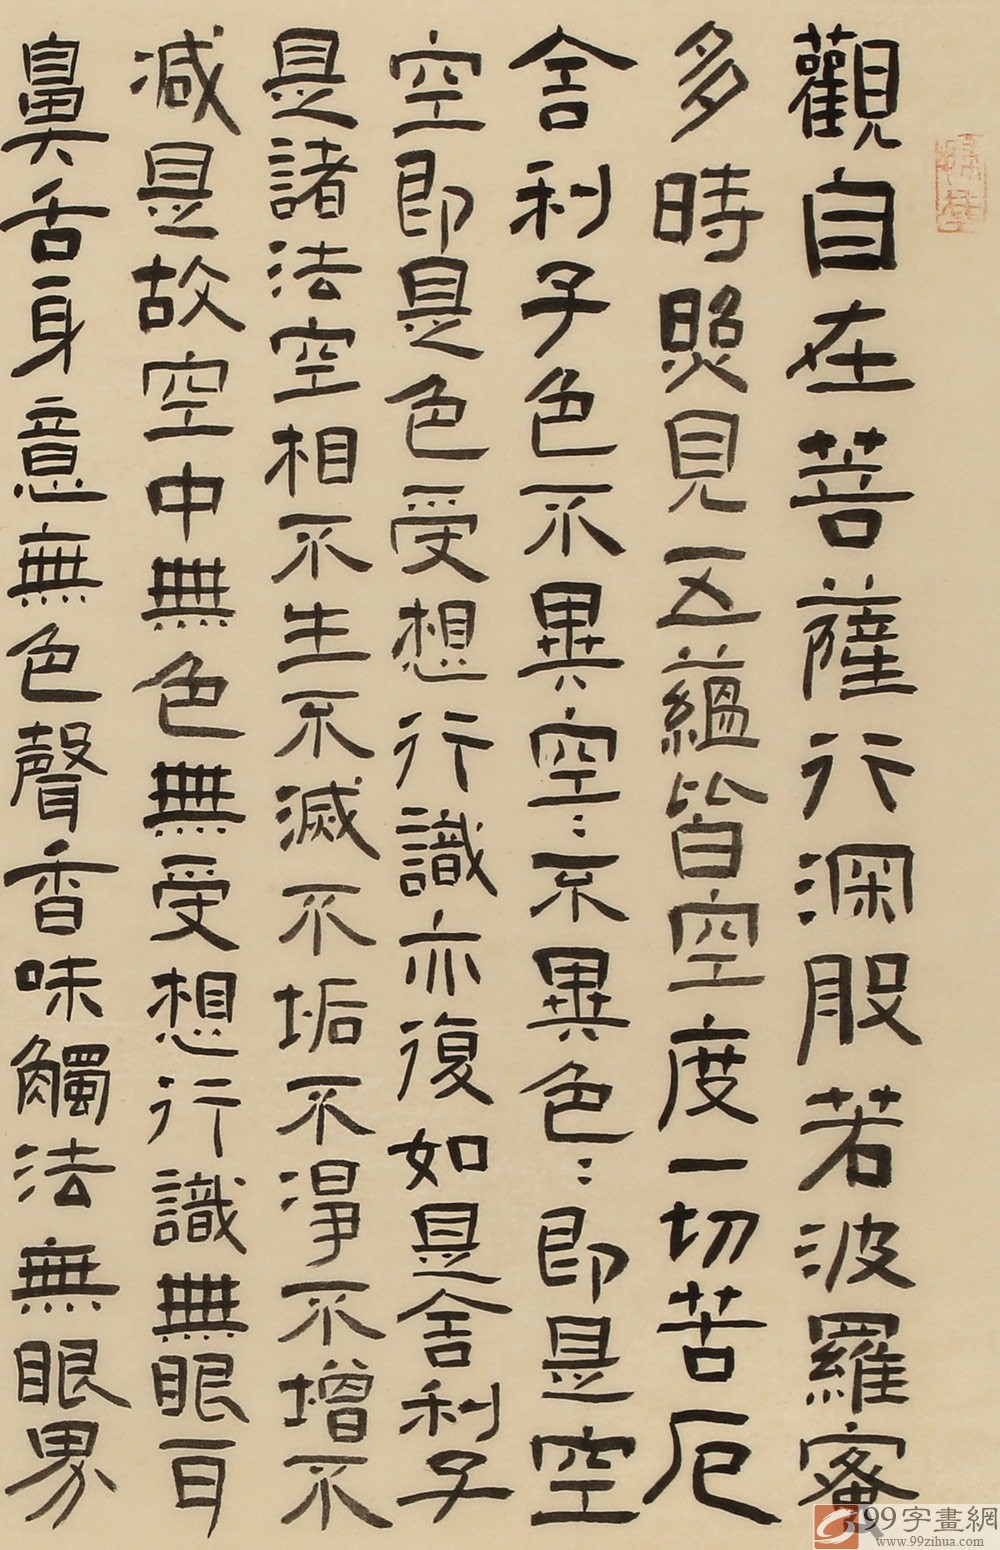 觀自在菩薩行深般若波羅蜜
多時照見五蘊皆空度一切苦厄
舍利子色不異空：不異色：即是空
空即是色受想行識亦復如是舍利子
是諸法空相不生不滅不垢不淨不增不
減是故空中無色無受想行識無眼耳
鼻舌身意無色聲香味觸法無眼界
99字畫網
www.99zihua.com